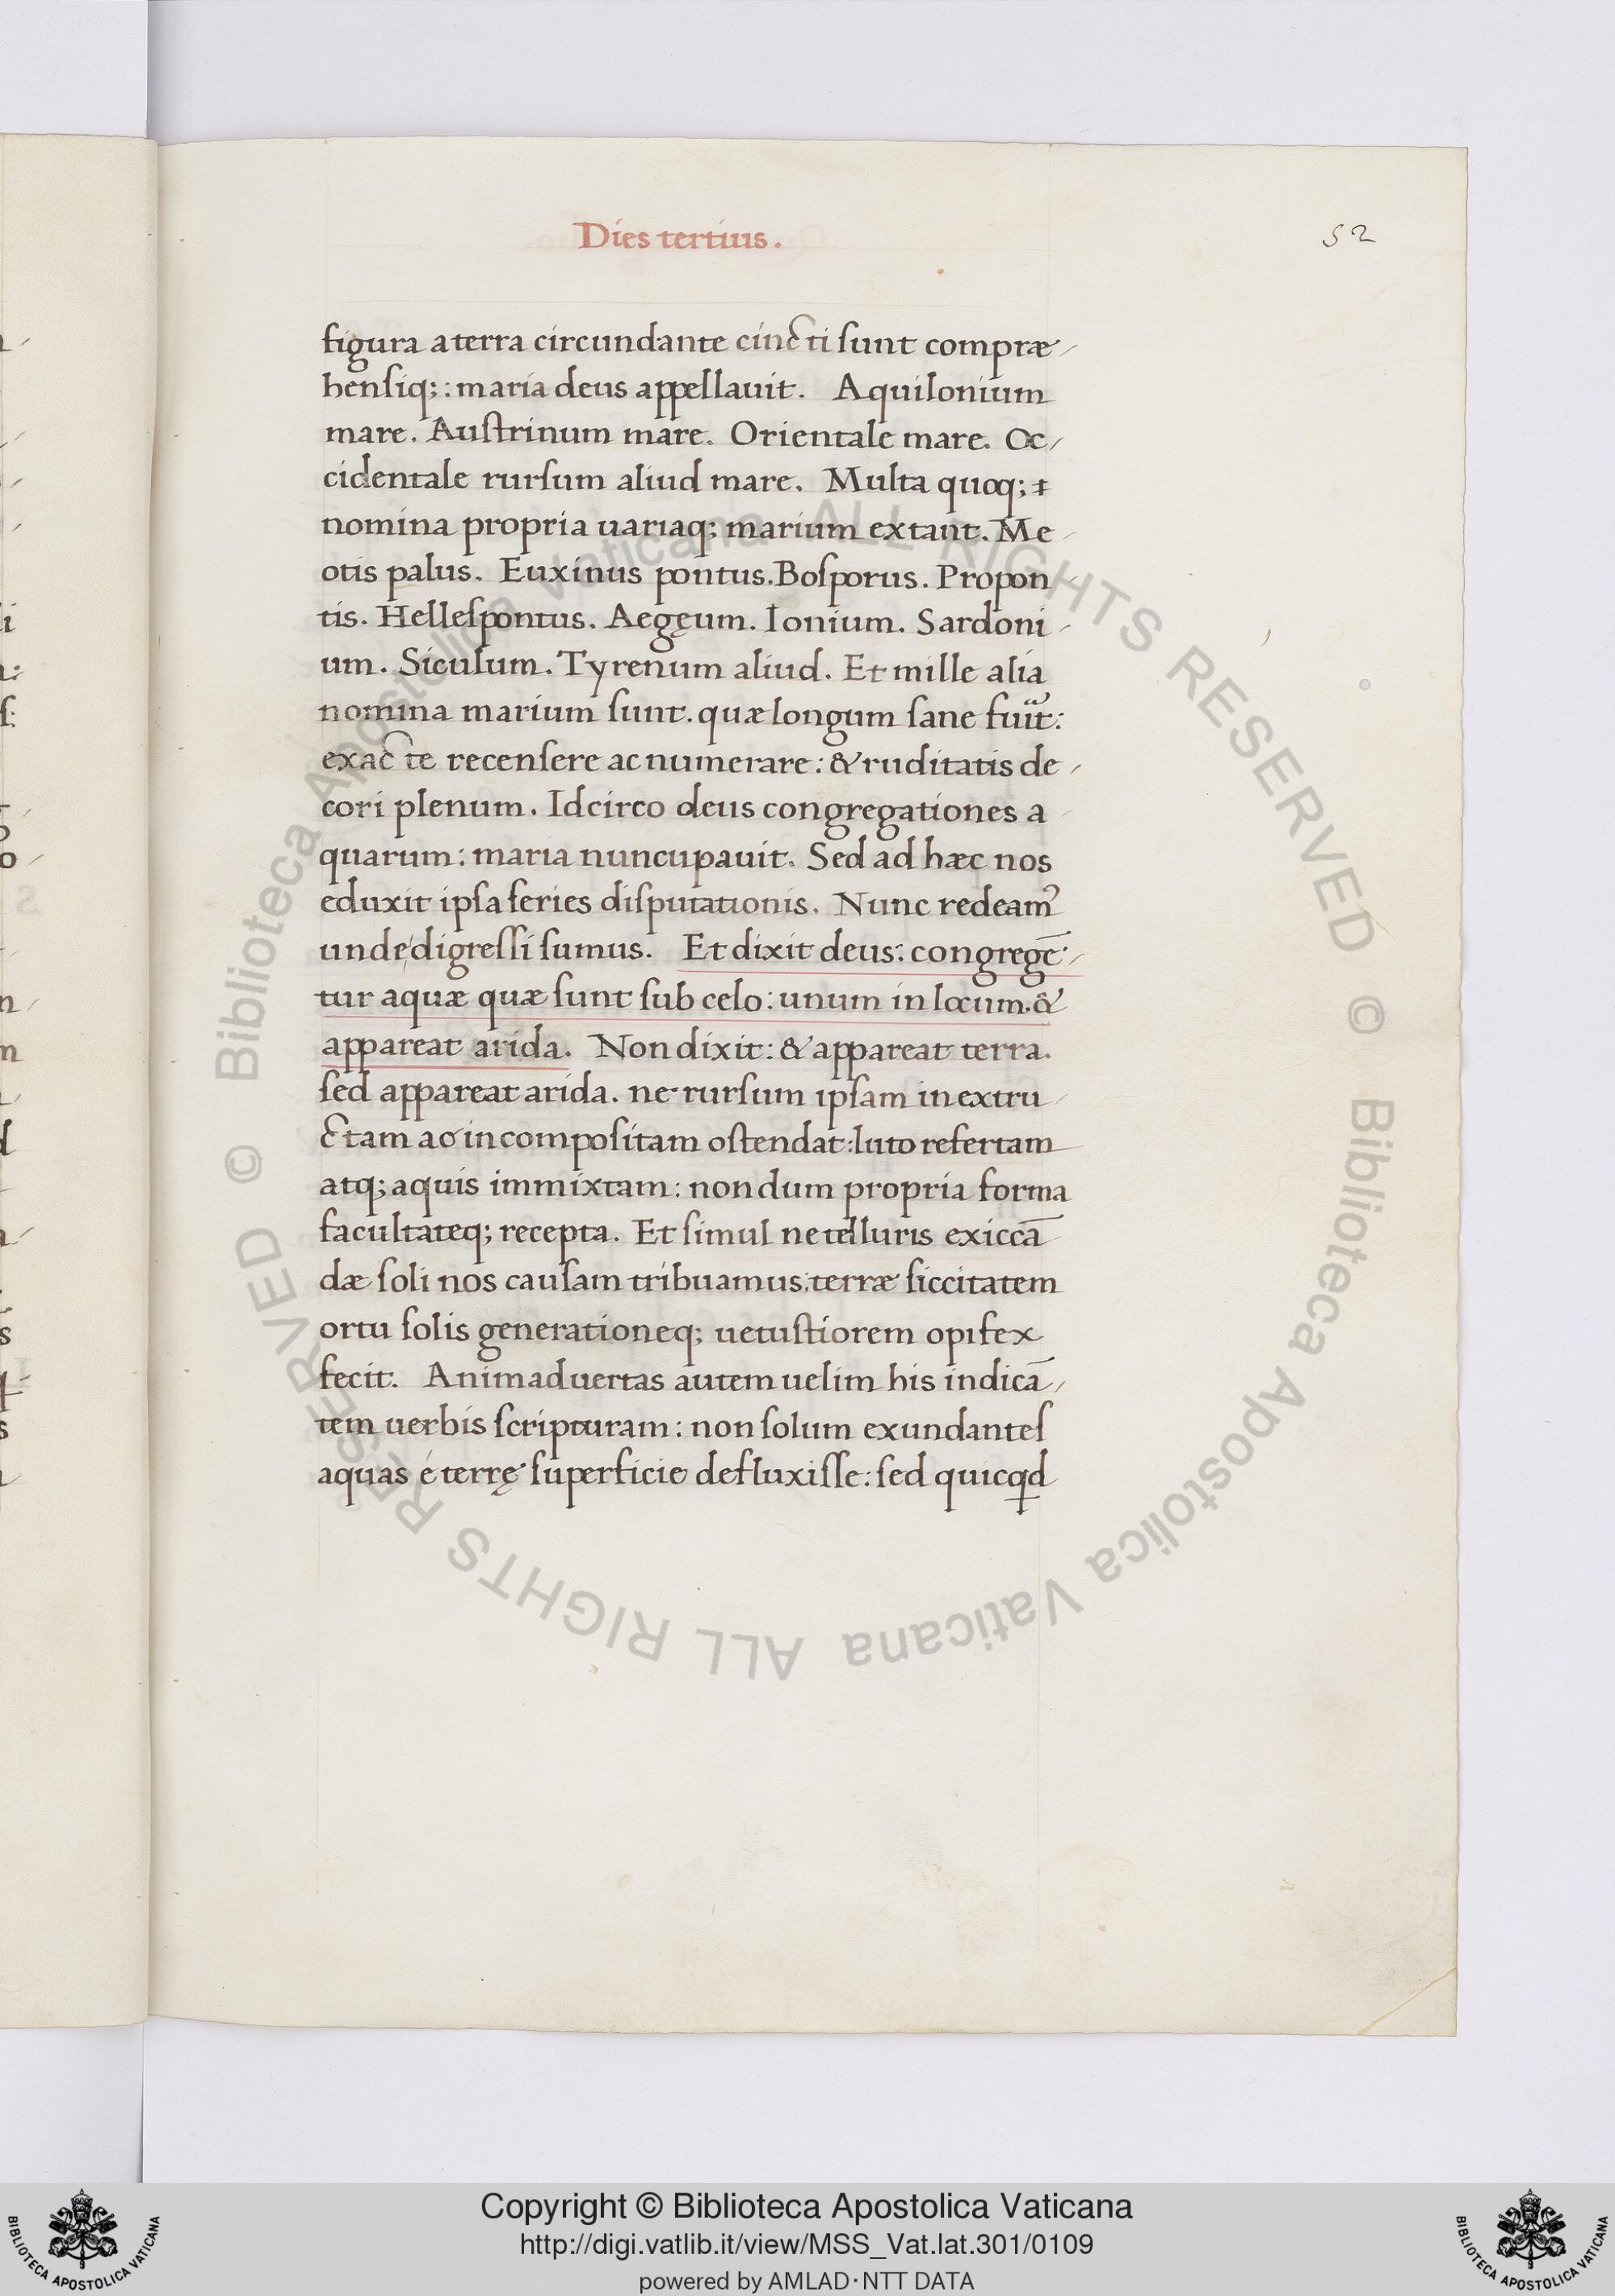 Dies tertius.
52
figura a terra circundante cincti sunt compræ-
hensiq;: maria deus appellauit. Aquilonium
mare. Austrinum mare. Orientale mare. Oc-
cidentale rursum aliud mare. Multa quoq; &
nomina propria uariaq; marium extant. Me-
otis palus. Euxinus pontus. Bosporus. Propon-
tis. Hellespontus. Aegęum. Ionium. Sardoni-
um. Siculum. Tyrenum aliud. Et mille alia
nomina marium sunt. quæ longum sane fuit:
exacte recensere ac numerare: & ruditatis de-
cori plenum. Idcirco deus congregationes a-
quarum: maria nuncupauit. Sed ad hæc nos
eduxit ipsa series disputationis. Nunc redeamꝰ
unde digressi sumus. Et dixit deus: congregē-
tur aquæ quæ sunt sub celo: unum in locum. &
appareat arida. Non dixit: & appareat terra.
sed appareat arida. ne rursum ipsam inextru-
ctam ac incompositam ostendat: luto refertam
atq; aquis immixtam: nondum propria forma
facultateq; recepta. Et simul ne telluris exiccā
dæ soli nos causam tribuamus: terræ siccitatem
ortu solis generationeq; uetustiorem opifex
fecit. Animaduertas autem uelim his indicā-
tem uerbis scripturam: non solum exundantes
aquas é terrę superficie defluxisse: sed quicqd
© Biblioteca Apostolica Vaticana ALL RIGHTS RESERVED
© Biblioteca Apostolica Vaticana ALL RIGHTS RESERVED
Copyright © Biblioteca Apostolica Vaticana
http://digi.vatlib.it/view/MSS_Vat.lat.301/0109
powered by AMLAD·NTT DATA
BIBLIOTECA APOSTOLICA VATICANA
BIBLIOTECA APOSTOLICA VATICANA